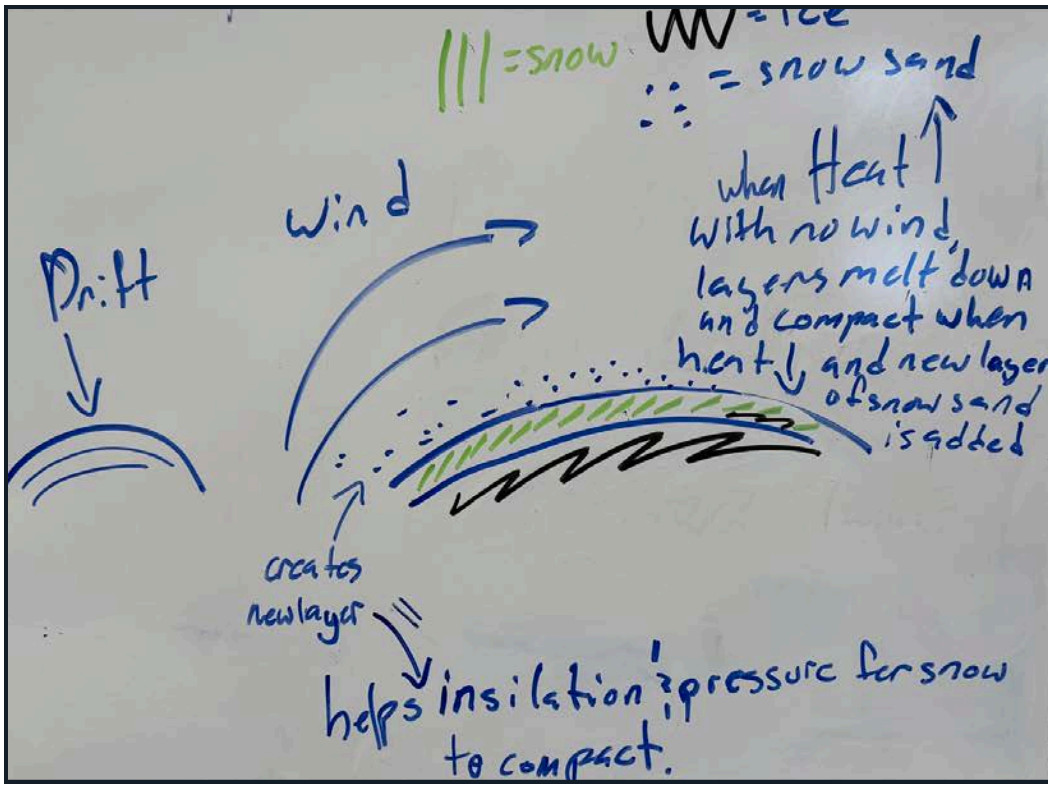 = ice
= snow
= snow sand
wind
Drift
when Heat ↑
with no wind,
layers melt down
and compact when
heat ↓ and new layer
of snow sand
is added
creates
new layer
helps insilation & pressure for snow
to compact.